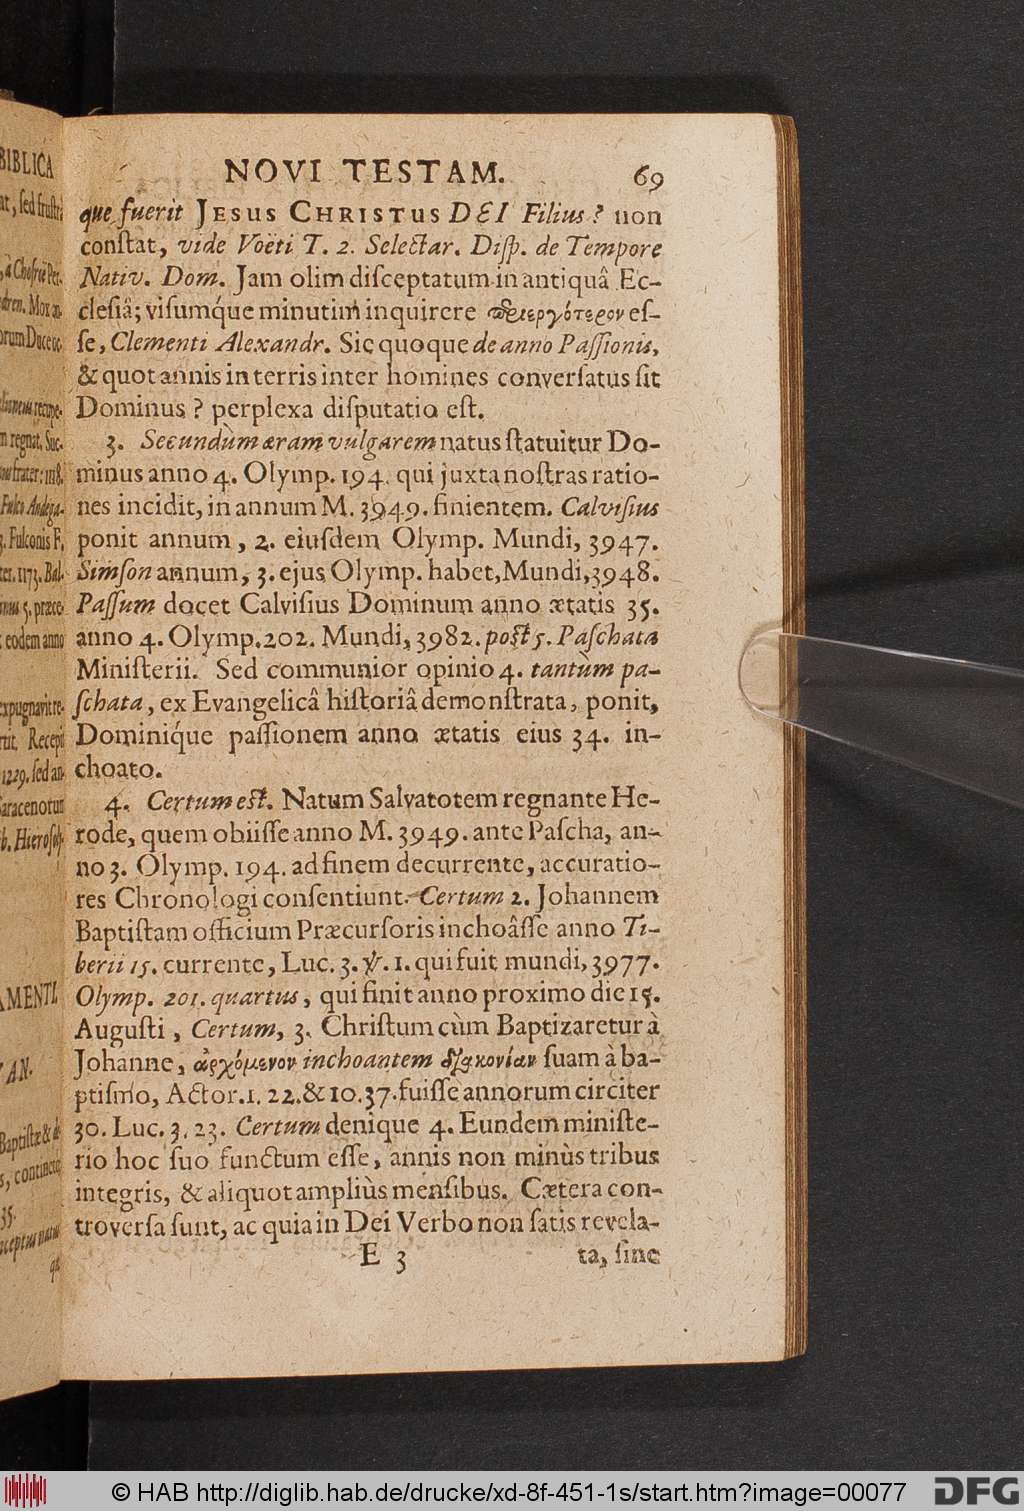 NOVI TESTAM. 69
que fuerit JESUS CHRISTUS DEI Filius? non
conſtat, vide Voëti T. 2. Selectar. Diſp. de Tempore
Nativ. Dom. Jam olim diſceptatum in antiquâ Ec-
cleſiâ; viſumq́ue minutim inquirere περιεργότερον eſ-
ſe, Clementi Alexandr. Sic quoque de anno Paſſionis,
& quot annis in terris inter homines converſatus ſit
Dominus? perplexa diſputatio eſt.
3. Secundùm æram vulgarem natus ſtatuitur Do-
minus anno 4. Olymp. 194. qui juxta noſtras ratio-
nes incidit, in annum M. 3949. finientem. Calviſius
ponit annum, 2. eiuſdem Olymp. Mundi, 3947.
Simſon annum, 3. ejus Olymp. habet, Mundi, 3948.
Paſſum docet Calviſius Dominum anno ætatis 35.
anno 4. Olymp. 202. Mundi, 3982. poſt 5. Paſchata
Miniſterii. Sed communior opinio 4. tantùm pa-
ſchata, ex Evangelicâ hiſtoriâ demonſtrata, ponit,
Dominiq́ue paſſionem anno ætatis eius 34. in-
choato.
4. Certum eſt. Natum Salvatotem regnante He-
rode, quem obiiſſe anno M. 3949. ante Paſcha, an-
no 3. Olymp. 194. ad finem decurrente, accuratio-
res Chronologi conſentiunt. Certum 2. Johannem
Baptiſtam officium Præcurſoris inchoâſſe anno Ti-
berii 15. currente, Luc. 3. ℣. 1. qui fuit mundi, 3977.
Olymp. 201. quartus, qui finit anno proximo die 15.
Auguſti, Certum, 3. Chriſtum cùm Baptizaretur à
Johanne, ἀρχόμενον inchoantem διακονίαν ſuam à ba-
ptiſmo, Actor. 1. 22. & 10. 37. fuiſſe annorum circiter
30. Luc. 3. 23. Certum denique 4. Eundem miniſte-
rio hoc ſuo functum eſſe, annis non minùs tribus
integris, & aliquot ampliùs menſibus. Cætera con-
troverſa ſunt, ac quia in Dei Verbo non ſatis revela-
E 3 ta, ſine
© HAB http://diglib.hab.de/drucke/xd-8f-451-1s/start.htm?image=00077
DFG